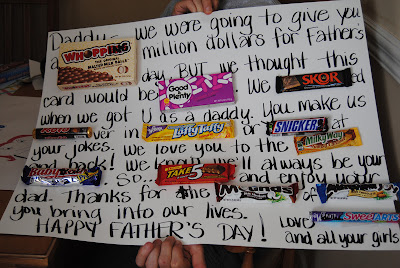 Daddy, we were going to give you
a WHOPPING THE ORIGINAL MALTED MILK BALLS million dollars for Father's
day, BUT we thought this
card would be Good & Plenty We SKOR
when we got U as a daddy. You make us
ever in Laffy Taffy or SNICKERS at
your jokes. We love you to the MilkyWay
and back! We know we'll always be your
BabyRuth So... TAKE 5 and enjoy your
dad. Thanks for the Mounds of
you bring into our lives. Love SWEETARTS
HAPPY FATHER'S DAY! and all your girls